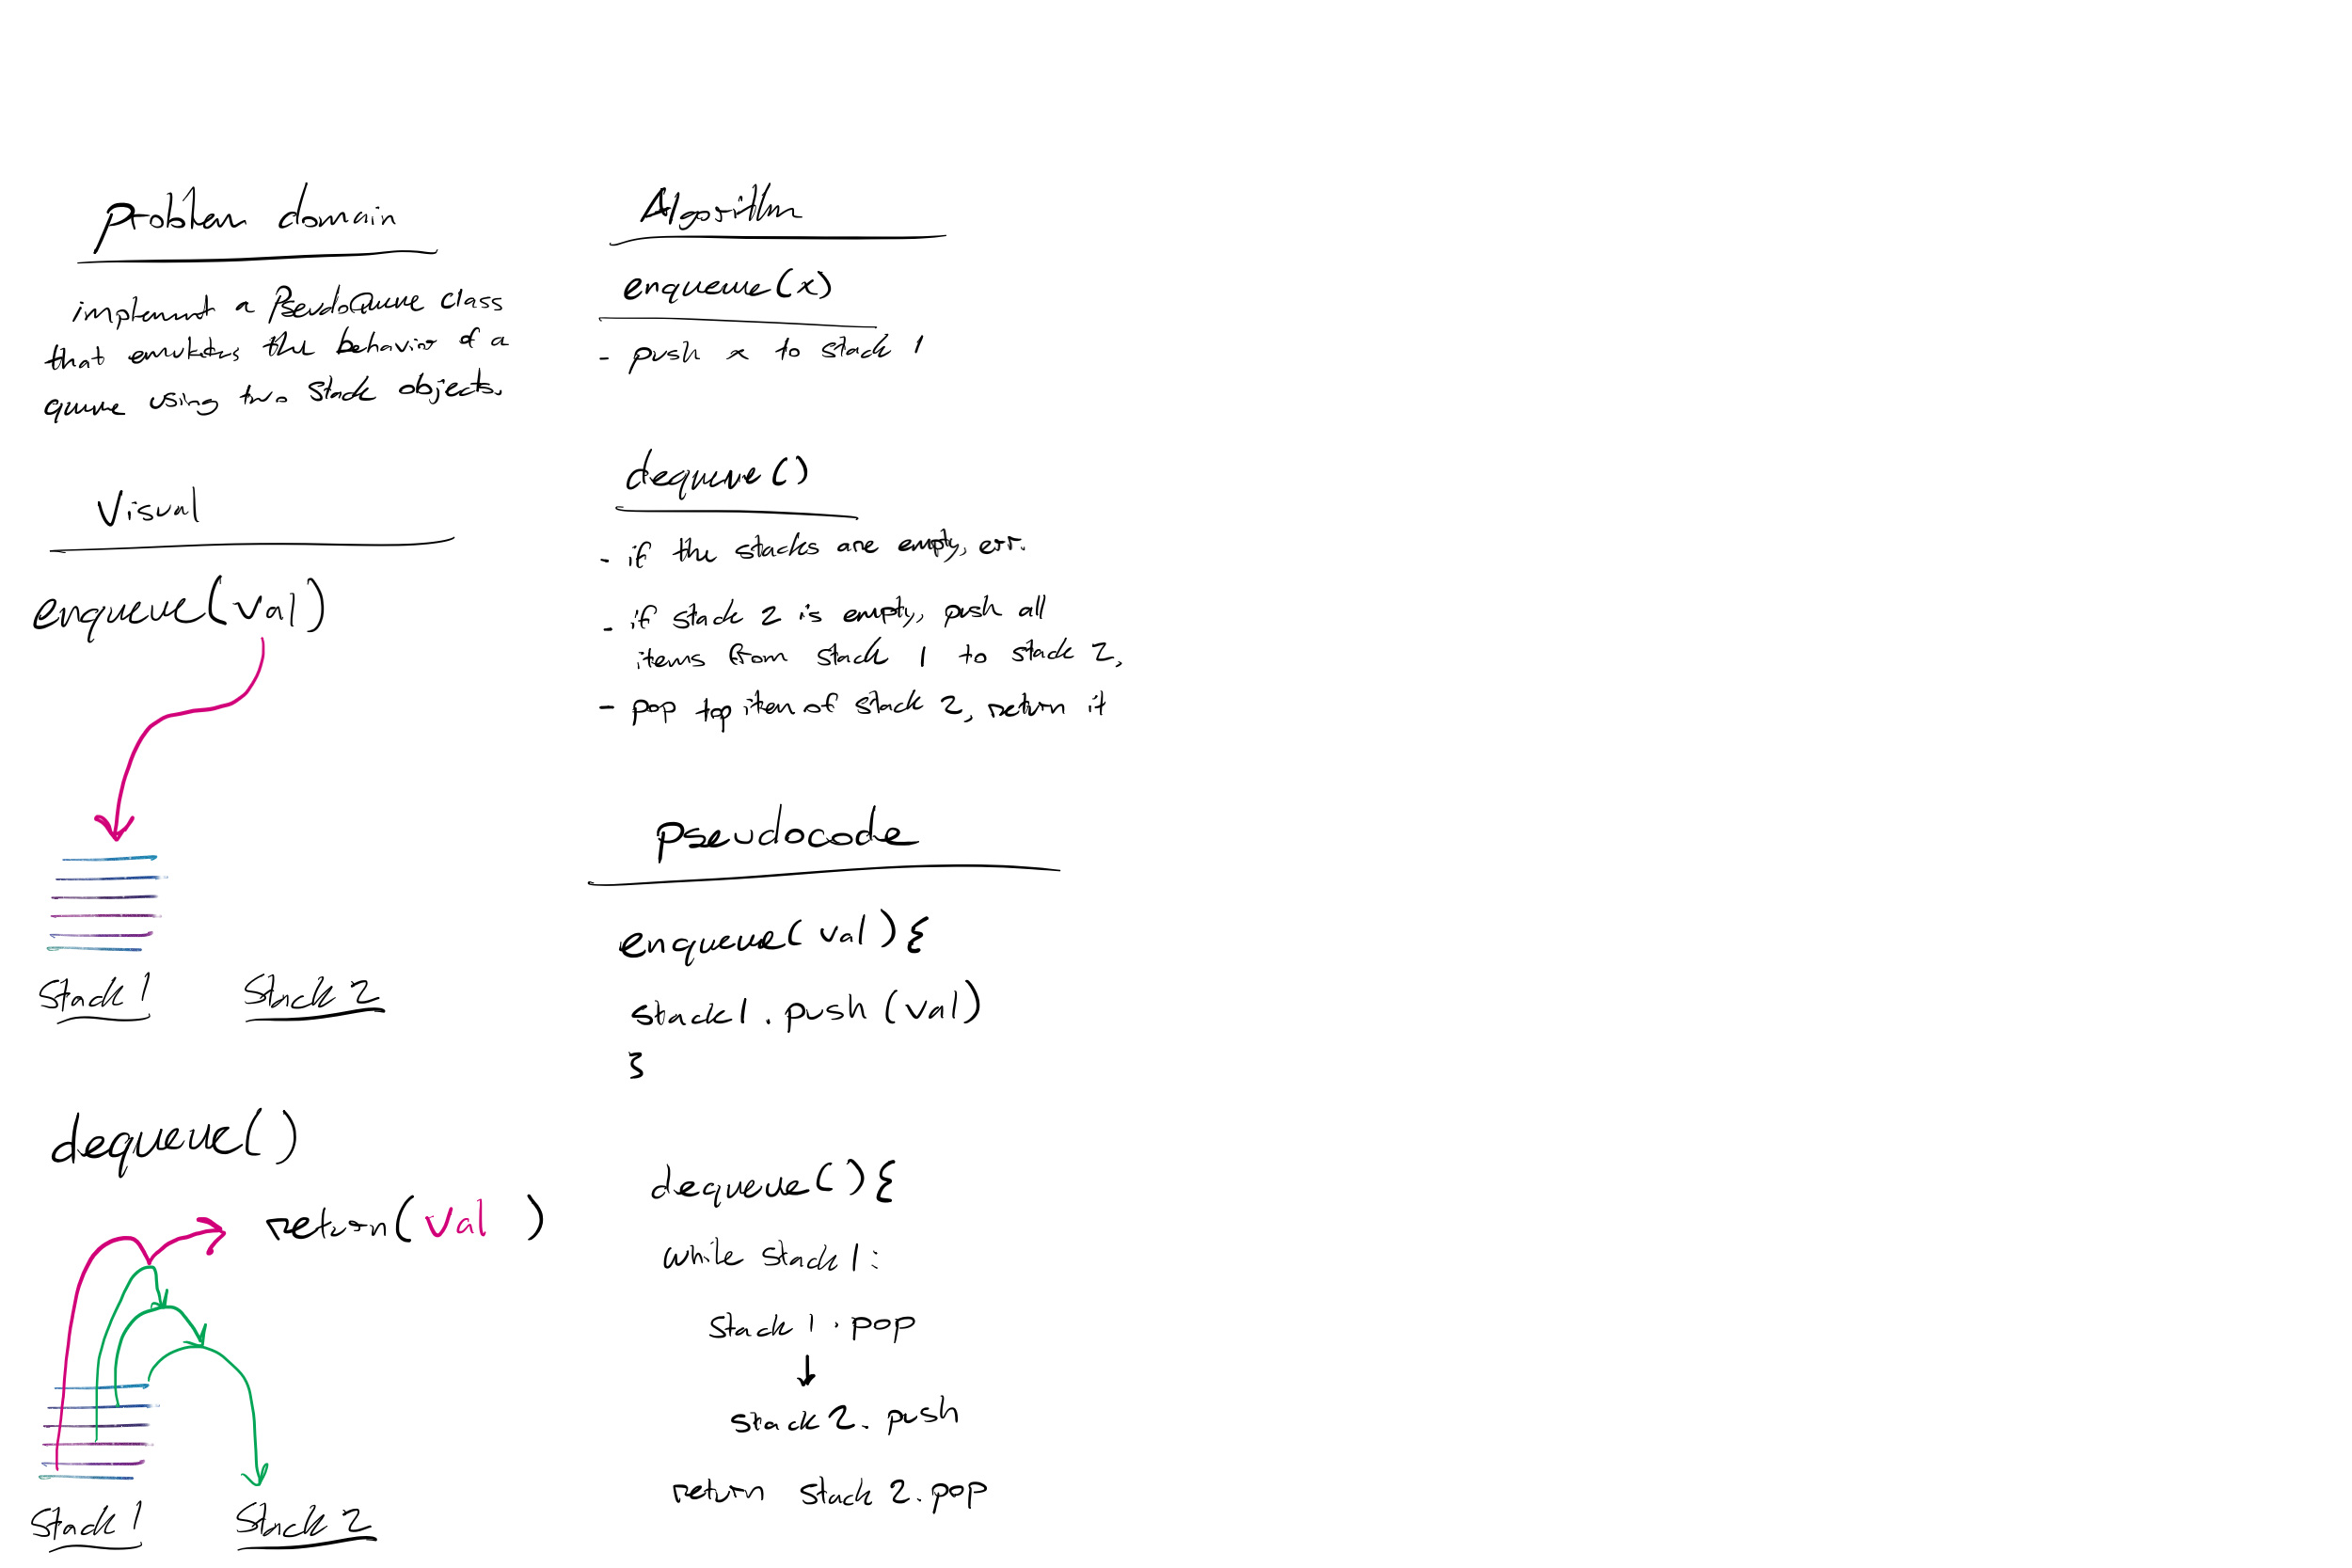 Problem domain
implement a PseudoQueue class
that emulates the behavior of a
queue using two stack objects.
Visual
enqueue(val)
Stack 1
Stack 2
dequeue()
return(val )
Stack 1
Stack 2
Algorithm
enqueue(x)
- push x to stack 1
dequeue()
- if the stacks are empty, err.
- if stack 2 is empty, push all
items from stack 1 to stack 2,
- pop top item of stack 2, return it
pseudocode
enqueue(val){
stack1.push(val)
}
dequeue(){
while stack1:
stack1.pop
↓
stack2.push
return stack2.pop